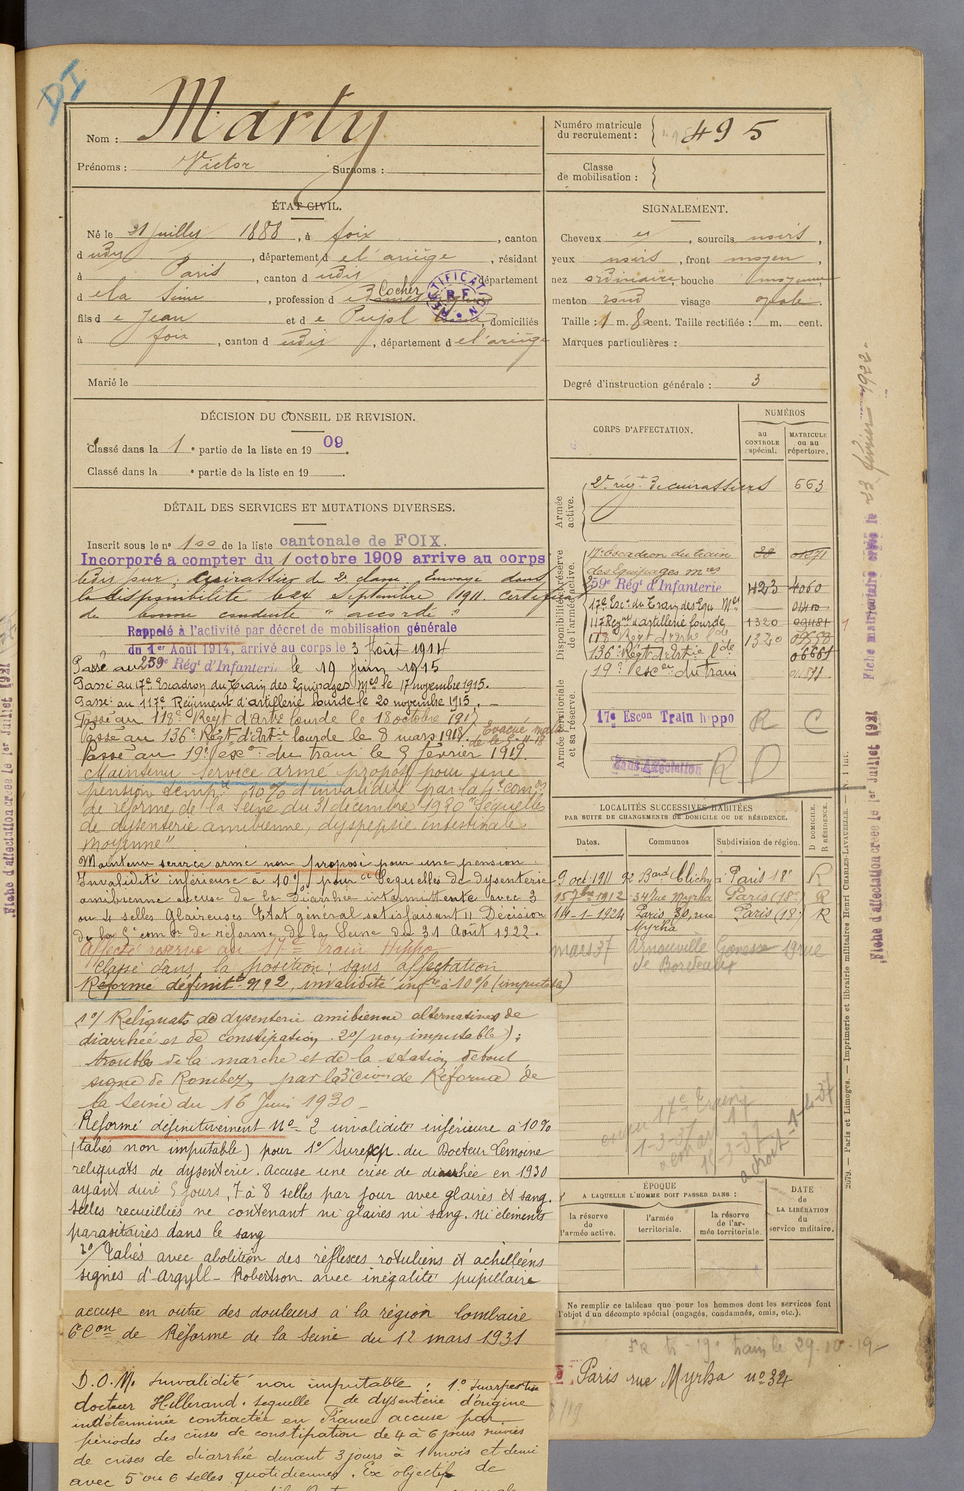 DI
Nom : Marty
Prénoms : Victor Surnoms :
Numéro matricule
du recrutement : 495
Classe
de mobilisation :
ÉTAT CIVIL.
Né le 21 juillet 1888, à foix, canton
d udit, département d e l'ariège, résidant
à Paris, canton d udit département
d e la Seine, profession d e Cocher
RECTIFICATION R.F.
fils d e Jean et d e Pujol, domiciliés
à foix, canton d udit, département d e l'ariège
Marié le
SIGNALEMENT.
Cheveux et, sourcils noirs,
yeux noirs, front moyen,
nez ordinaire, bouche moyenne
menton rond visage ovale.
Taille : 1 m. cent. Taille rectifiée : m. cent.
Marques particulières :
Degré d'instruction générale : 3
DÉCISION DU CONSEIL DE REVISION.
Classé dans la 1e partie de la liste en 1909.
Classé dans la e partie de la liste en 19 .
CORPS D'AFFECTATION.
NUMÉROS
au
CONTROLE
spécial.
MATRICULE
ou au
répertoire.
Armée
active.
2e rég.t de cuirassiers 663
Disponibilité et réserve
de l'armée active.
17e escadron du train
des Equipages mres
259e Régt d'Infanterie 423 4060
17e Esc.n du Train des Equ. Mres
117 Reg.t d'artillerie lourde 1320
118e Régt d'Art.ie l.de 1320
136e Régt d'Art.ie l.de
19e esc.on du train
Armée territoriale
et sa réserve.
17e Escon Train hippo R C
Sans Affectation R D
DÉTAIL DES SERVICES ET MUTATIONS DIVERSES.
Inscrit sous le no 100 de la liste cantonale de FOIX.
Incorporé à compter du 1 octobre 1909 arrive au corps
ledit jour, Cuirassier de 2e classe. Envoyé dans
la disponibilité le Septembre 1911. Certificat
de bonne conduite " accordé "
Rappelé à l'activité par décret de mobilisation générale
du 1er Août 1914, arrivé au corps le 3 Août 1914
Passé au 259e Régt d'Infanterie le 19 Juin 1915
Passé au 17e Escadron du Train des Equipages Mres le 17 novembre 1915.
Passé au 117e Régiment d'artillerie lourde le 20 novembre 1915.
Passé au 118e Régt d'Art.ie lourde le 18 octobre 1917
Passé au 136e Régt d'Art.ie lourde le 8 mars 1918. Evacué malade
Passé au 19e esc.on du train le 9 février 1919.
Maintenu service armé proposé pour une
pension temp.re 10% d'invalidité par la 4e com.on
de réforme de la Seine du 31 décembre 1920 "Séquelles
de dysenterie amibienne, dyspepsie intestinale
moyenne".
Maintenu service armé non proposé pour une pension
Invalidité inférieure à 10% pour : Séquelles de Dysenterie
amibienne accuse de la Diarrhée intermittente avec 3
ou 4 selles Glaireuses Etat général satisfaisant" Décision
de la com.on de réforme de la Seine du 31 Août 1922.
Affecté réserve au 17e train Hippo
Classé dans la position : sans affectation
Réformé définit.t No 2, invalidité inf.re à 10% (imputable)
1o/ Reliquats de dysenterie amibienne alternatives de
diarrhée et de constipation. 2o/ non imputable) :
trouble de la marche et de la station debout
signe de Romberg, par la 3e Com.on de Réforme de
la Seine du 16 Juin 1930
Réformé définitivement No 2 invalidité inférieure à 10%
(tabès non imputable) pour 1o/ Surexp. du Docteur Lemoine
reliquats de dysenterie. accuse une crise de diarrhée en 1930
ayant duré 5 jours, 7 à 8 selles par jour avec glaires et sang.
Selles recueillies ne contenant ni glaires ni sang. ni éléments
parasitaires dans le sang
2o/ Tabès avec abolition des réflexes rotuliens et achilléens
signes d'Argyll-Robertson avec inégalité pupillaire
accuse en outre des douleurs à la région lombaire
6e Con de Réforme de la Seine du 12 mars 1931
D.O.M. Invalidité non imputable : 1o Surexpertise
docteur Hillerand. séquelle de dysenterie d'origine
indéterminée contractée en France accuse par
périodes des crises de constipation de 4 à 6 jours suivies
de crises de diarrhée durant 3 jours à 1 mois et demi
avec 5 ou 6 selles quotidiennes. Ex objectif de
LOCALITÉS SUCCESSIVES HABITÉES
PAR SUITE DE CHANGEMENTS DE DOMICILE OU DE RÉSIDENCE.
D DOMICILE.
R RÉSIDENCE.
Dates. Communes Subdivision de région.
9 oct 1911 92 Bard Clichy à Paris 18e R
15 7bre 1912 34 Rue Myrha Paris (18e) R
14-1-1924 Paris 30, rue Myrha Paris (18) R
mars 37 Arnouville Gonesse 19 rue
de Bordeaux
ÉPOQUE
A LAQUELLE L'HOMME DOIT PASSER DANS :
la réserve
de
l'armée active.
l'armée
territoriale.
la réserve
de l'ar-
mée territoriale.
DATE
de
LA LIBÉRATION
du
service militaire.
Ne remplir ce tableau que pour les hommes dont les services font
l'objet d'un décompte spécial (engagés, condamnés, omis, etc.).
train le 29.10.19
Paris rue Myrha no 34
Fiche matriculaire créée le 23 février 1922
Fiche d'affectation créée le 1er Juillet 1931
2679. — Paris et Limoges. — Imprimerie et librairie militaires Henri CHARLES-LAVAUZELLE.
Fiche d'affectation créée le 1er Juillet 1931